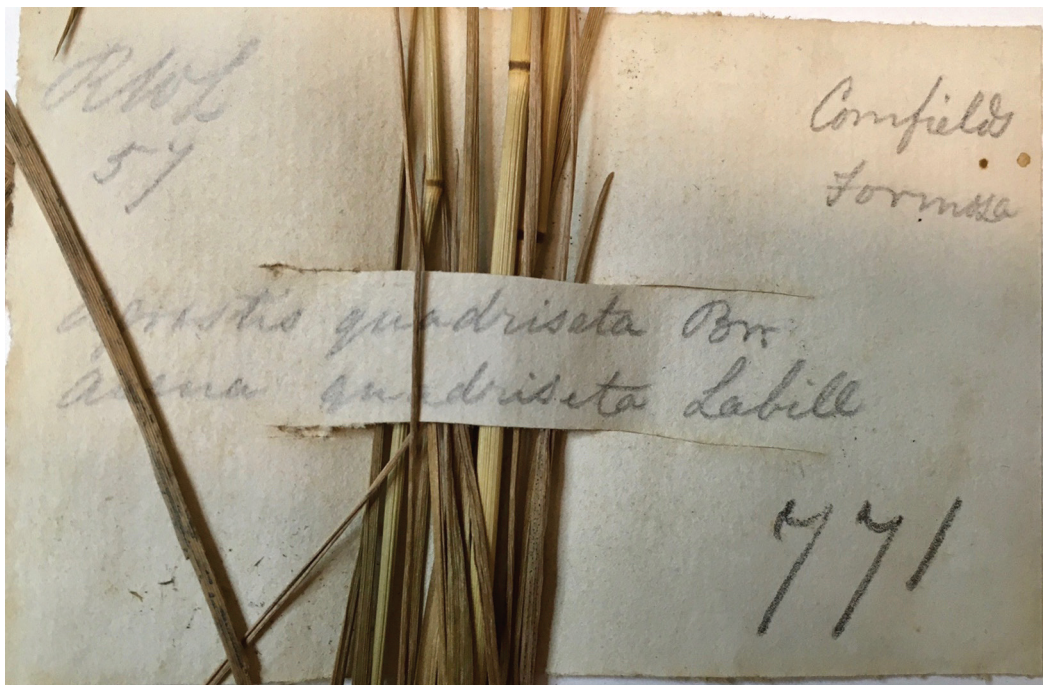 RWL
57
Cornfields
Formosa
Agrostis quadriseta Brr.
Avena quadriseta Labill
771